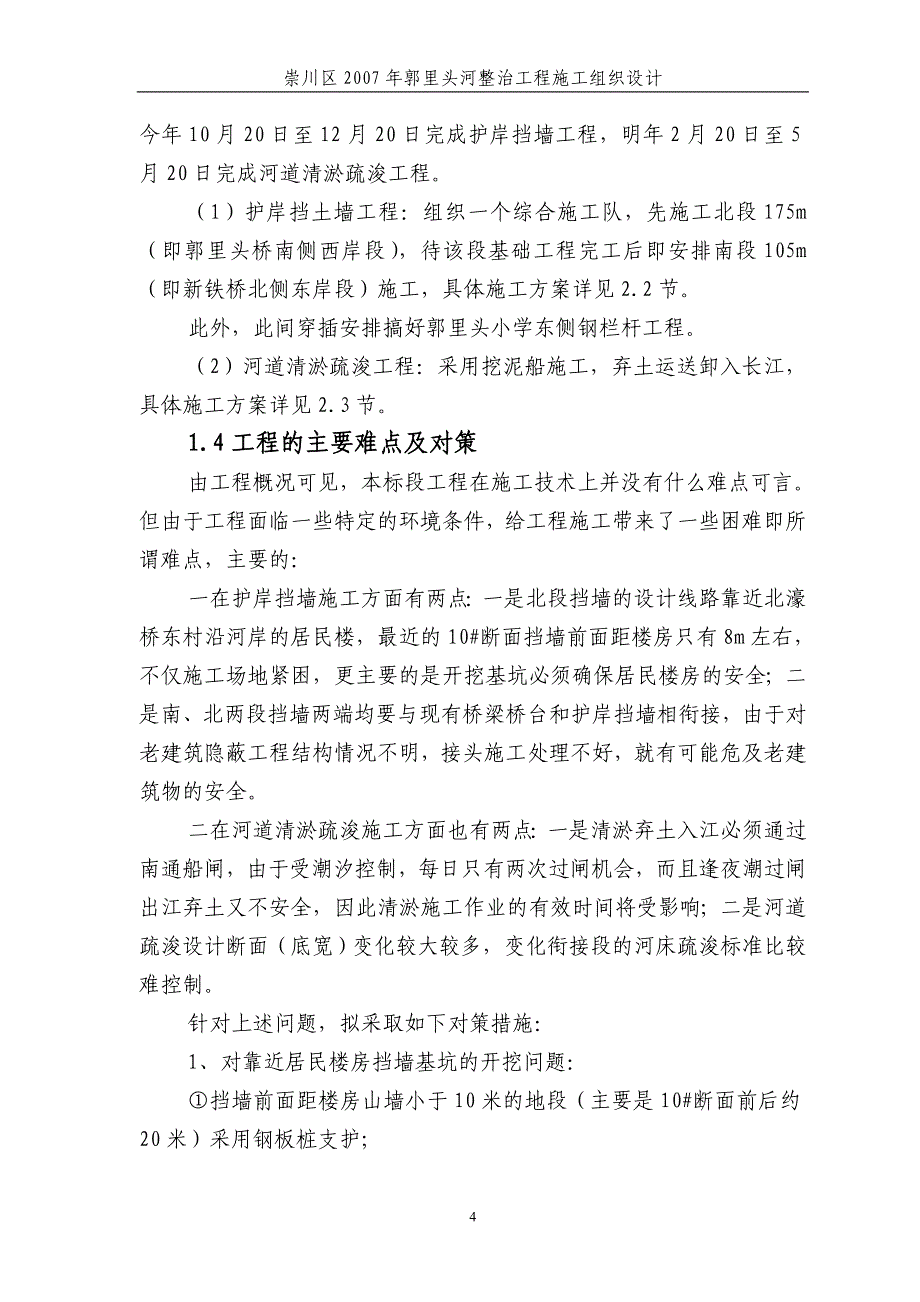 崇川区 2007 年郭里头河整治工程施工组织设计
今年 10 月 20 日至 12 月 20 日完成护岸挡墙工程，明年 2 月 20 日至 5
月 20 日完成河道清淤疏浚工程。
（1）护岸挡土墙工程：组织一个综合施工队，先施工北段 175m
（即郭里头桥南侧西岸段），待该段基础工程完工后即安排南段 105m
（即新铁桥北侧东岸段）施工，具体施工方案详见 2.2 节。
此外，此间穿插安排搞好郭里头小学东侧钢栏杆工程。
（2）河道清淤疏浚工程：采用挖泥船施工，弃土运送卸入长江，
具体施工方案详见 2.3 节。
1.4 工程的主要难点及对策
由工程概况可见，本标段工程在施工技术上并没有什么难点可言。
但由于工程面临一些特定的环境条件，给工程施工带来了一些困难即所
谓难点，主要的：
一在护岸挡墙施工方面有两点：一是北段挡墙的设计线路靠近北濠
桥东村沿河岸的居民楼，最近的 10#断面挡墙前面距楼房只有 8m 左右，
不仅施工场地紧困，更主要的是开挖基坑必须确保居民楼房的安全；二
是南、北两段挡墙两端均要与现有桥梁桥台和护岸挡墙相衔接，由于对
老建筑隐蔽工程结构情况不明，接头施工处理不好，就有可能危及老建
筑物的安全。
二在河道清淤疏浚施工方面也有两点：一是清淤弃土入江必须通过
南通船闸，由于受潮汐控制，每日只有两次过闸机会，而且逢夜潮过闸
出江弃土又不安全，因此清淤施工作业的有效时间将受影响；二是河道
疏浚设计断面（底宽）变化较大较多，变化衔接段的河床疏浚标准比较
难控制。
针对上述问题，拟采取如下对策措施：
1、对靠近居民楼房挡墙基坑的开挖问题：
①挡墙前面距楼房山墙小于 10 米的地段（主要是 10#断面前后约
20 米）采用钢板桩支护；
4